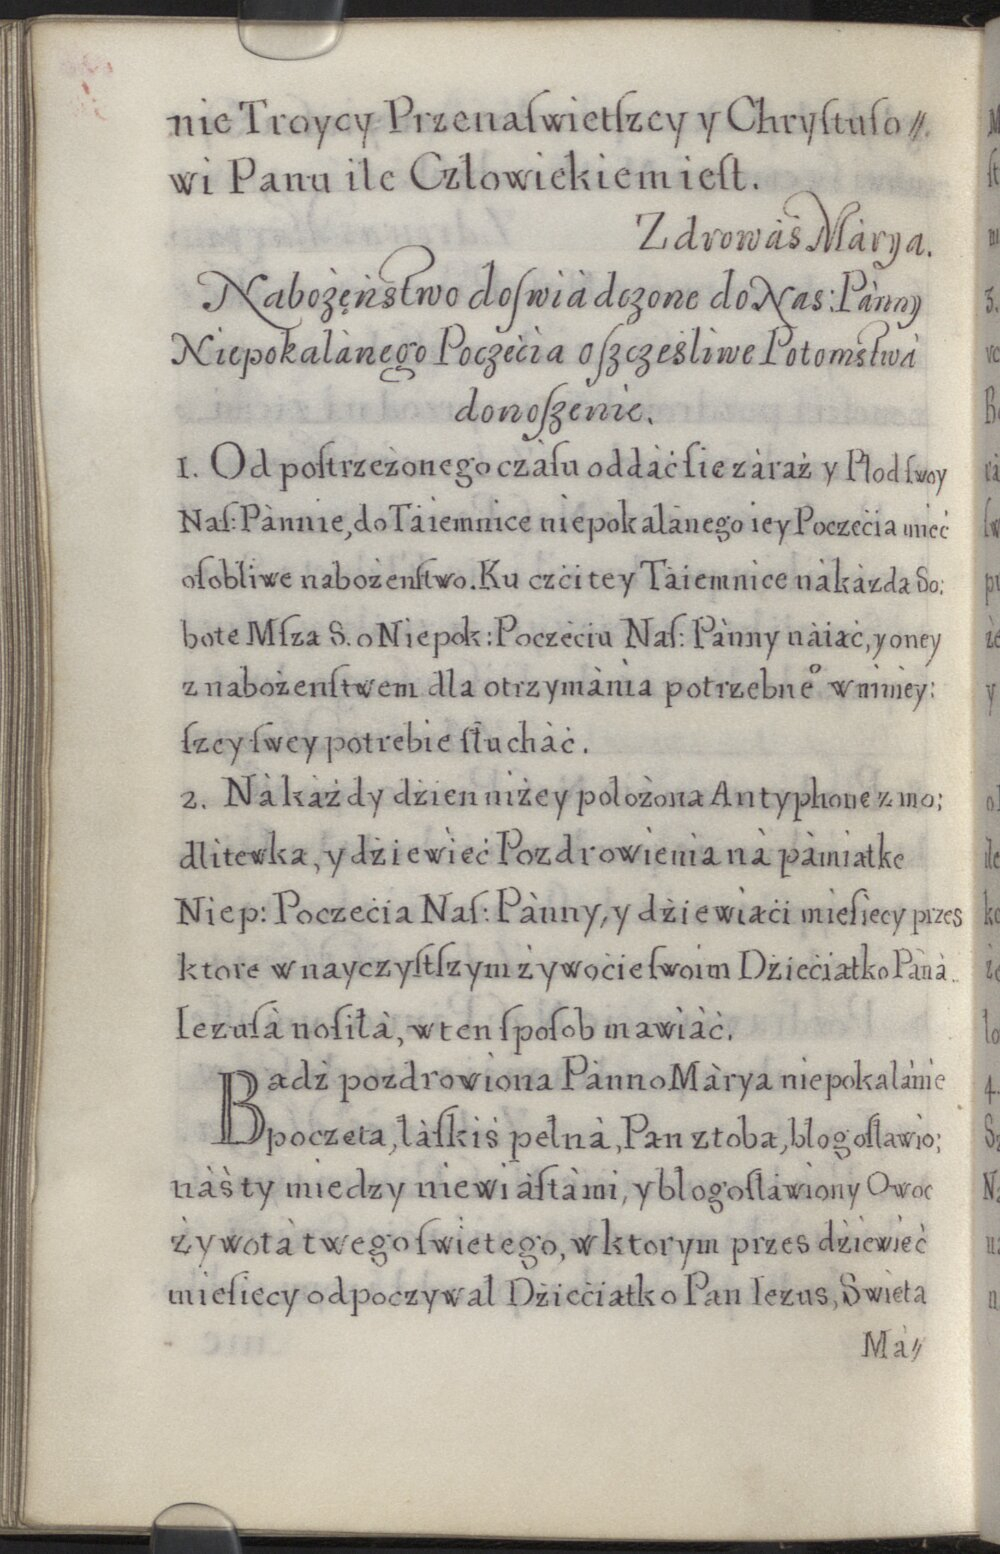 nie Troycy Przenaſwietſzey y Chryſtuſo〃.
wi Panu ile Człowiekiem ieſt.
Zdrowáś Márya.
Nabożęńſtwo doſwiádczone do Nas: Pánny
Niepokalànego Poczęċia oſzcześliwe Potomſtwá
donoſzenie.
1. Od poſtrzeżonego czàſu oddàċ ſie zàraż y Płod ſwoy
Naſ: Pànnie, do Táiemnice niepokalànego iey Poczeċia mieċ
oſobliwe nabożenſtwo. Ku czċi tey Tàiemnice nàkàżda So:
bote Mſza S. o Niepok: Poczeċiu Naſ: Pànny nàiàċ, y oney
z nabożenſtwem dla otrzymània potrzebneº w niniey:
ſzey ſwey potrebie ſłuchàċ.
2. Nàkàżdy dżien niżey położona Antyphone z mo:
dlitewka, y dżiewieċ Pozdrowienia nà pàmiatke
Niep: Poczeċia Naſ: Pànny, y dżiewiaċi mieſiecy przes
ktore w nayczyſtſzym żywoċie ſwoim Dżieċiatko Pànà
Iezuſà noſiłà, w ten ſpoſob mawiàċ.
Badż pozdrowiona Pànno Màrya niepokalànie
poczeta, łàſkiś pełnà, Pan z toba, blogoſławio:
nàś ty miedzy niewiàſtàmi, y blogoſławiony Owoc
żywotà twego ſwietego, w ktorym przes dżiewieċ
mieſiecy odpoczywał Dżieċiatko Pan Iezus, Swieta
Mà〃